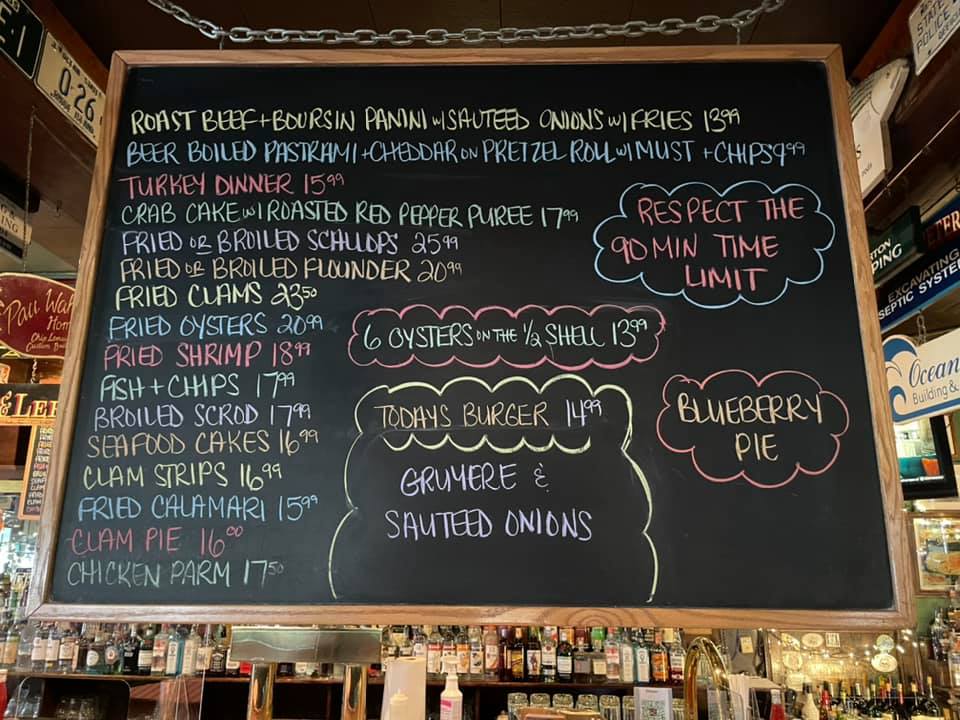 ROAST BEEF + BOURSIN PANINI w/ SAUTEED ONIONS w/ FRIES 13.99
BEER BOILED PASTRAMI + CHEDDAR ON PRETZEL ROLL w/ MUST + CHIPS 9.99
TURKEY DINNER 15.99
CRAB CAKE w/ ROASTED RED PEPPER PUREE 17.99
FRIED OR BROILED SCALLOPS 25.99
FRIED OR BROILED FLOUNDER 20.99
FRIED CLAMS 23.50
FRIED OYSTERS 20.99
FRIED SHRIMP 18.99
FISH + CHIPS 17.99
BROILED SCROD 17.99
SEAFOOD CAKES 16.99
CLAM STRIPS 16.99
FRIED CALAMARI 15.99
CLAM PIE 16.00
CHICKEN PARM 17.50
RESPECT THE
90 MIN TIME
LIMIT
6 OYSTERS ON THE 1/2 SHELL 13.99
TODAYS BURGER 14.99
GRUYERE &
SAUTEED ONIONS
BLUEBERRY
PIE
0-26
STATE
POLICE
EXCAVATING
SEPTIC SYSTE
Ocean
Building &
Paul